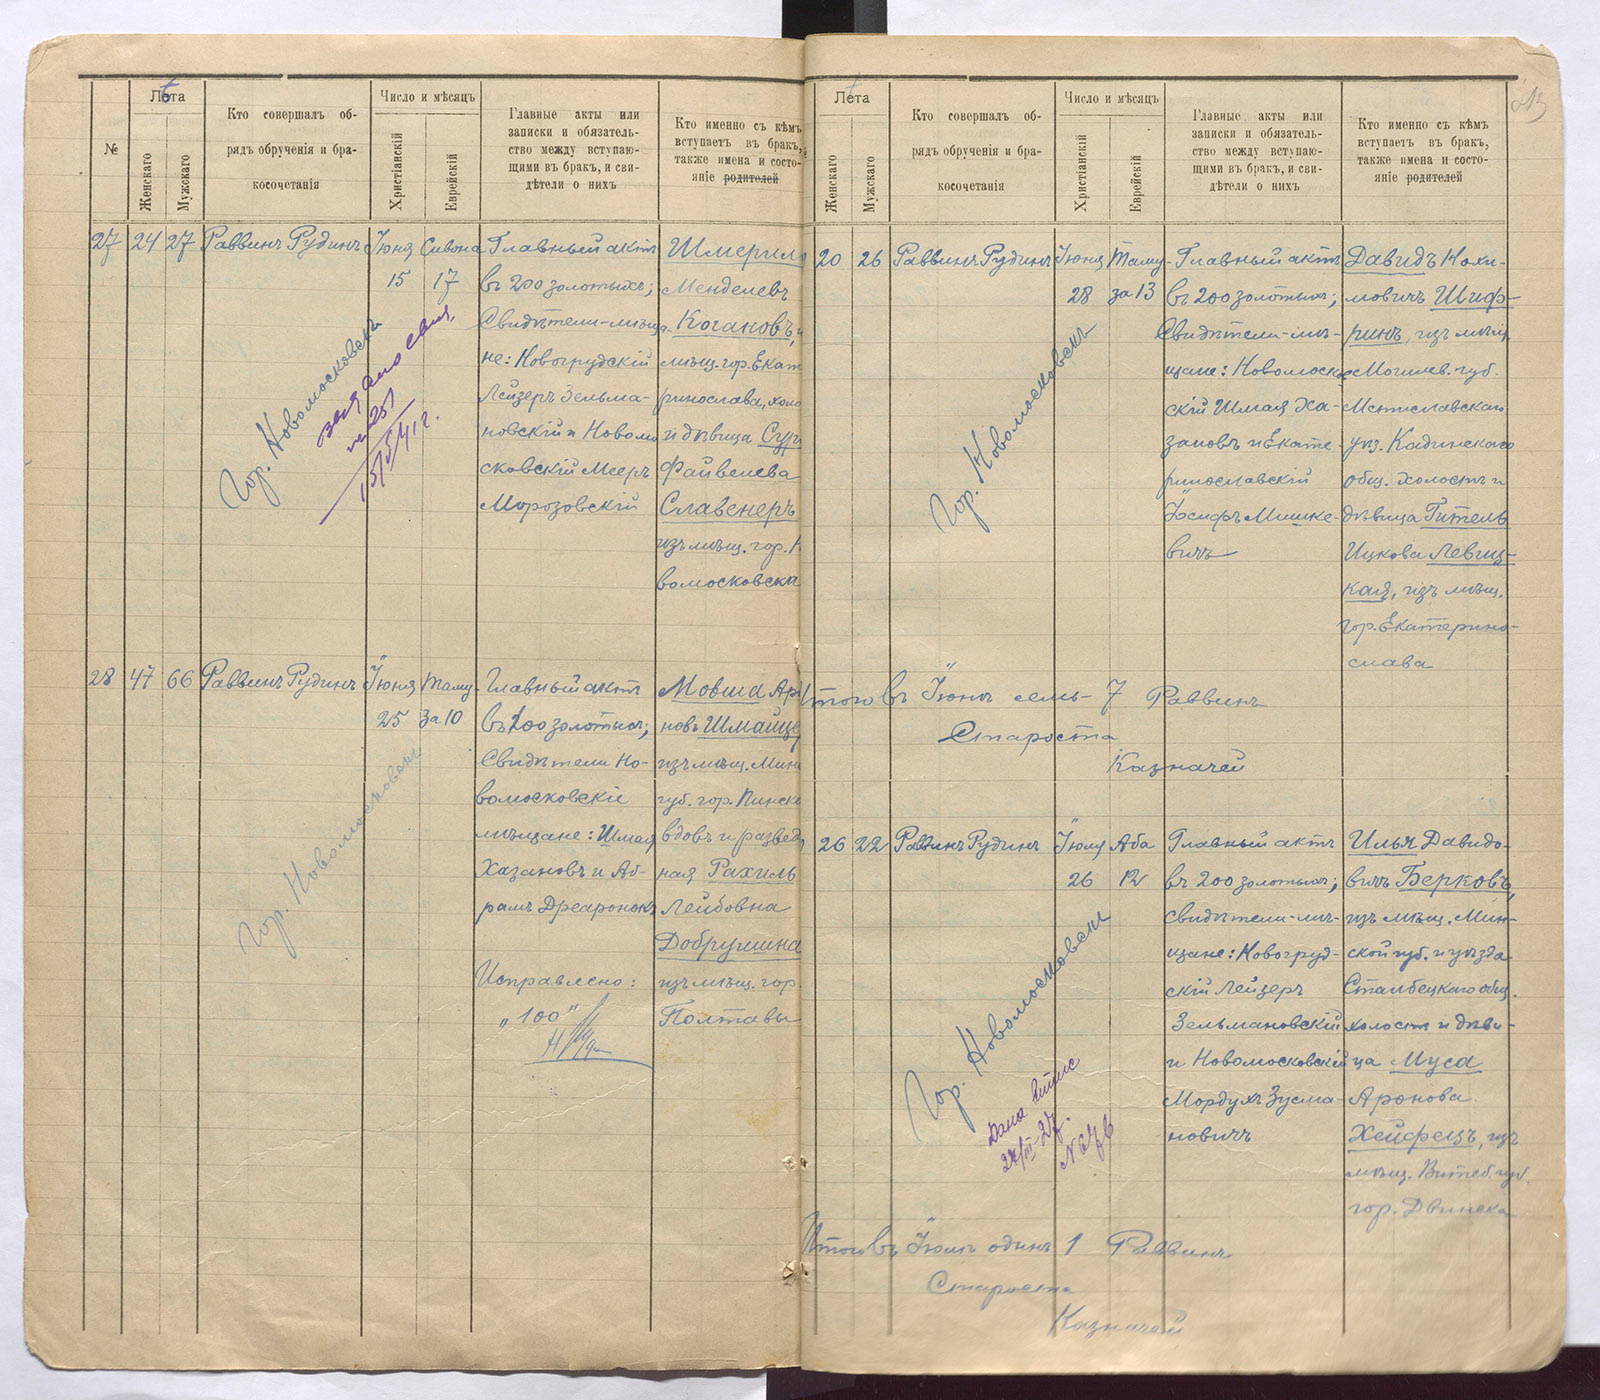 №
Лѣта
Женскаго
Мужскаго
Кто совершалъ об-
рядъ обрученія и бра-
косочетанія
Число и мѣсяцъ
Христіанскій
Еврейскій
Главные акты или
записки и обязатель-
ство между вступаю-
щими въ бракъ, и сви-
дѣтели о нихъ
Кто именно съ кѣмъ
вступаетъ въ бракъ,
также имена и состо-
яніе родителей
27
24
27
Раввинъ Рудинъ
Іюня
15
Сивона
17
Главный актъ
въ 200 золотыхъ;
Свидѣтели-мѣща
не: Новогрудскій
Лейзеръ Зельма-
новскій и Новомо
сковскій Мееръ
Морозовскій
Шмерило
Менделевъ
Когановъ,
мѣщ. гор. Екат
ринослава, холо
и дѣвица
Файвелева
Славенеръ
изъ мѣщ. гор. Н
вомосковска
Гор. Новомосковскъ
28
47
66
Раввинъ Рудинъ
Іюня
25
Таму-
за 10
Главный актъ
въ 100 золотых;
Свидѣтели Но-
вомосковскіе
мѣщане: Шмая
Хазановъ и Аб-
рамъ
Исправлено:
„100"
Мовша Ар
новъ
изъ мѣщ. Минс
губ. гор. Пинска
вдовъ и развед
ная Рахиль
Лейбовна
Добрушина
изъ мѣщ. гор.
Полтавы
Гор. Новомосковскъ
Лѣта
Женскаго
Мужскаго
Кто совершалъ об-
рядъ обрученія и бра-
косочетанія
Число и мѣсяцъ
Христіанскій
Еврейскій
Главные акты или
записки и обязатель-
ство между вступаю-
щими въ бракъ, и сви-
дѣтели о нихъ
Кто именно съ кѣмъ
вступаетъ въ бракъ,
также имена и состо-
яніе родителей
20
26
Раввинъ Рудинъ
Іюня
28
Таму-
за 13
Главный актъ
въ 200 золотыхъ;
Свидѣтели-мѣ-
щане: Новомоско
скій Шмая Ха-
зановъ и Екате-
ринославскій
Іосифъ Мишке-
вичъ
Давидъ Нохи-
мовичъ Шиф-
ринъ, изъ мѣщ.
Могилев. губ.
Мстиславскаго
уѣз. Кадинскаго
общ. холостъ и
дѣвица Гитель
Ицкова Левиц-
кая, изъ мѣщ.
гор. Екатерино-
слава
Гор. Новомосковскъ
Итого въ Іюнѣ семь- 7 Раввинъ
Староста
Казначей
26
22
Раввинъ Рудинъ
Іюля
26
Аба
12
Главный актъ
въ 200 золотыхъ;
свидѣтели-мѣ-
щане: Новогруд-
скій Лейзеръ
Зельмановскій
и Новомосковскій
Мордухъ Зусма-
новичъ
Илья Давидо-
вичъ Берковъ,
изъ мѣщ. Мин-
ской губ. и уѣзда
Столбецкаго общ.
холостъ и дѣви-
ца Муса
Аронова
Хейфецъ, изъ
мѣщ. Витеб. губ.
гор. Двинска
Гор. Новомосковскъ
Итого въ Іюлѣ одинъ 1 Раввинъ
Староста
Казначей